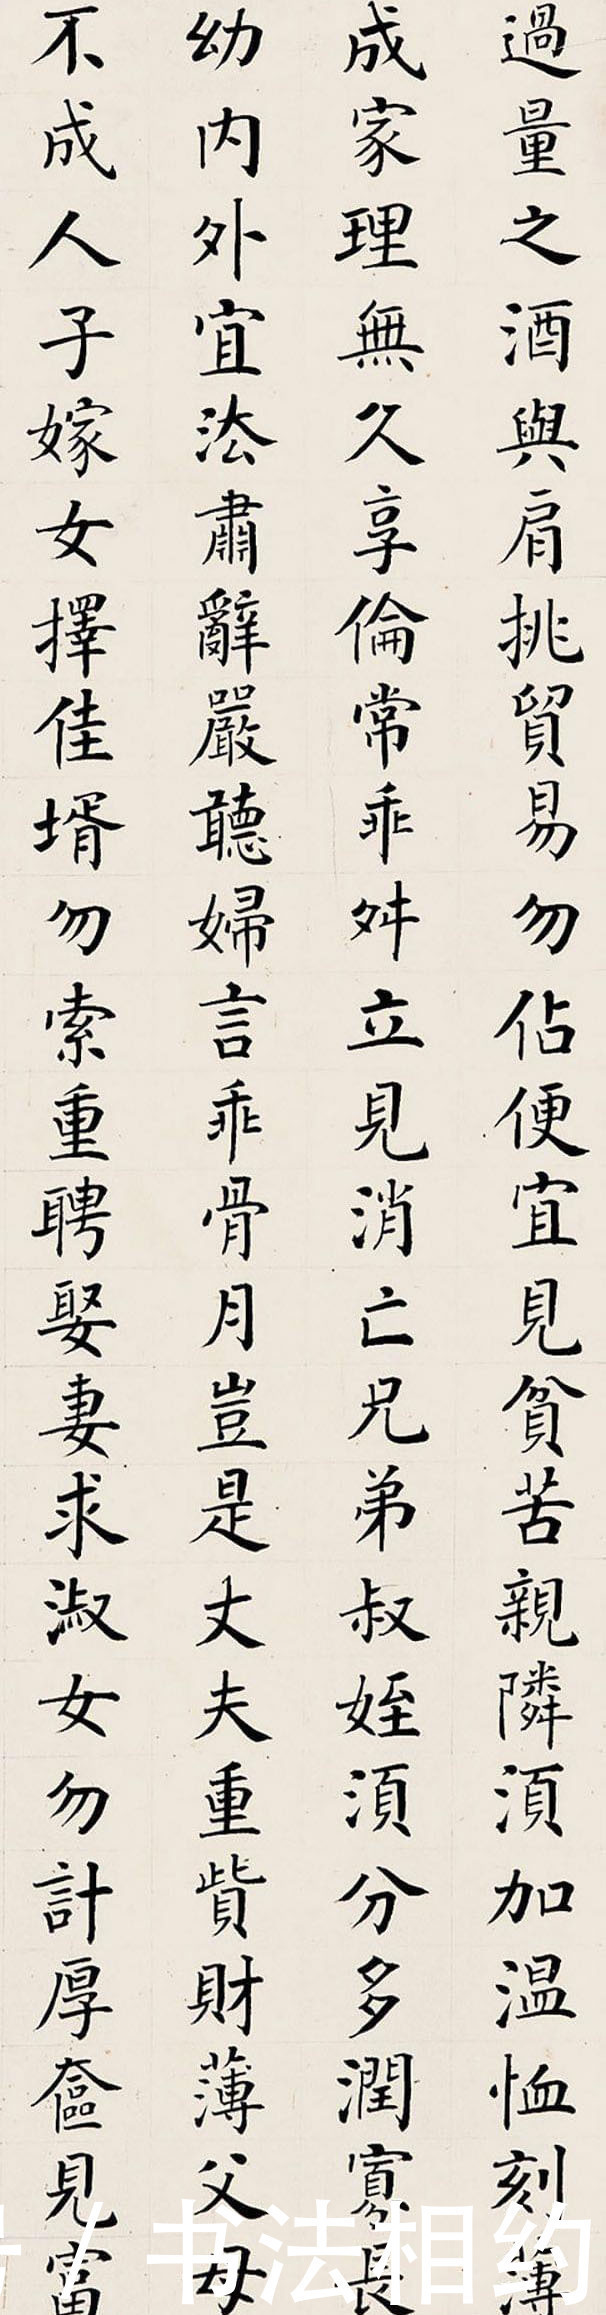 過量之酒與肩挑貿易勿佔便宜見貧苦親隣湏加温恤刻薄
成家理無久享倫常乖舛立見消亡兄弟叔姪湏分多潤寡長
幼内外宜法肅辭嚴聽婦言乖骨月豈是丈夫重貲財薄父母
不成人子嫁女擇佳壻勿索重聘娶妻求淑女勿計厚奩見富
号/书法相约